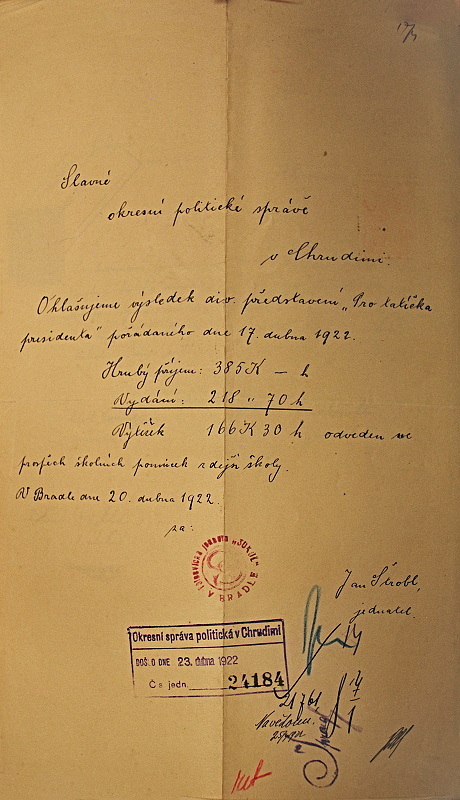 Slavné
okresní politické správě
v Chrudimi.
Ohlašujeme výsledek div. představení „Pro tatíčka
presidenta" pořádaného dne 17. dubna 1922.
Hrubý příjem: 385 K — h
Vydání: 218 " 70 h
Výtěžek 166 K 30 h odveden ve
prospěch školních pomůcek zdejší školy.
V Bradle dne 20. dubna 1922.
za:
Tělocvičná jednota „SOKOL"
V BRADLE
Jan Štrobl,
jednatel.
Okresní správa politická v Chrudimi
DOŠLO DNE 23. dubna 1922
Čís. jedn. 24184
21761